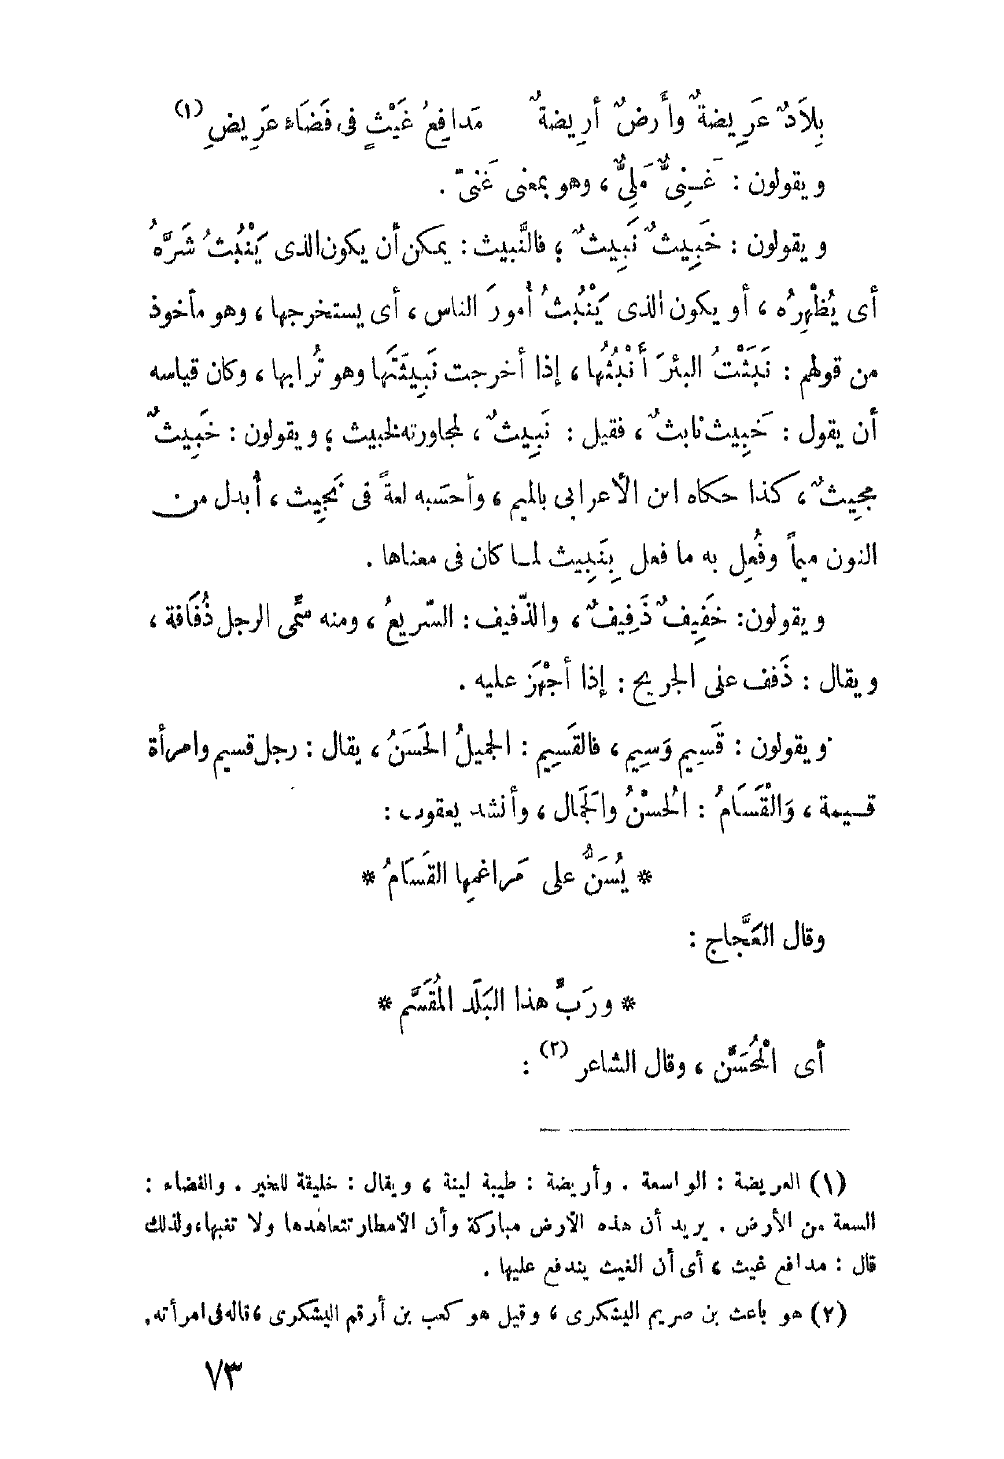 بِلَادٌ عَرِيضةٌ وأَرضٌ أرِيضةٌ مَدافِعُ غَيْثٍ فى فَضَاء عَرِيضِ (١)
ويقولون : غَنِىٌّ مَلِىٌّ ، وهو بمعنى غَنىّ .
ويقولون : خَبِيثٌ نَبِيثٌ ؛ فالنَّبيث : يمكن أن يكون الذى يَنْبُثُ شَرَّهُ
أى يُظْهِرُه ، أو يكون الذى يَنْبُثُ أُمورَ الناس ، أى يستخرجها ، وهو مأخوذ
من قولهم : نَبَثْتُ البئرَ أَنْبُثُها ، إذا أخرجت نَبِيثَتَها وهو تُرابها ، وكان قياسه
أن يقول : خَبِيث نابثٌ ، فقيل : نَبِيثٌ ، لمجاورته لخبيث ؛ ويقولون : خَبِيثٌ
مجِيثٌ ، كذا حكاه ابن الأعرابى بالميم ، وأحسَبه لغةً فى نَجِيث ، أُبدل من
النون ميماً وفُعِل به ما فعل بِنَبِيث لما كان فى معناها .
ويقولون : خَفِيفٌ ذَفِيفٌ ، والذّفيف : السّريعُ ، ومنه سمِّى الرجل ذُفَافة ،
ويقال : ذَفف على الجريح : إذا أجْهَز عليه .
ويقولون : قَسِيم وَسِيم ، فالقَسِيم : الجميلُ الحَسَنُ ، يقال : رجل قسيم وامرأة
قسيمة ، وَالْقَسَامُ : الحُسْنُ والجَمال ، وأنشد يعقوب :
* يُسَنُّ على مَراغمِها القَسَامُ *
وقال العَجَّاج :
* ورَبِّ هذا البَلَد المُقَسَّم *
أى المُحَسَّن ، وقال الشاعر (٢) :
(١) العريضة : الواسعة . وأريضة : طيبة لينة ، ويقال : خليقة للخير . والفضاء :
السعة من الأرض . يريد أن هذه الأرض مباركة وأن الأمطار تتعاهدها ولا تغبها ، ولذلك
قال : مدافع غيث ، أى أن الغيث يندفع عليها .
(٢) هو باعث بن صريم اليشكرى ، وقيل هو كعب بن أرقم اليشكرى ، قاله فى امرأته .
٧٣